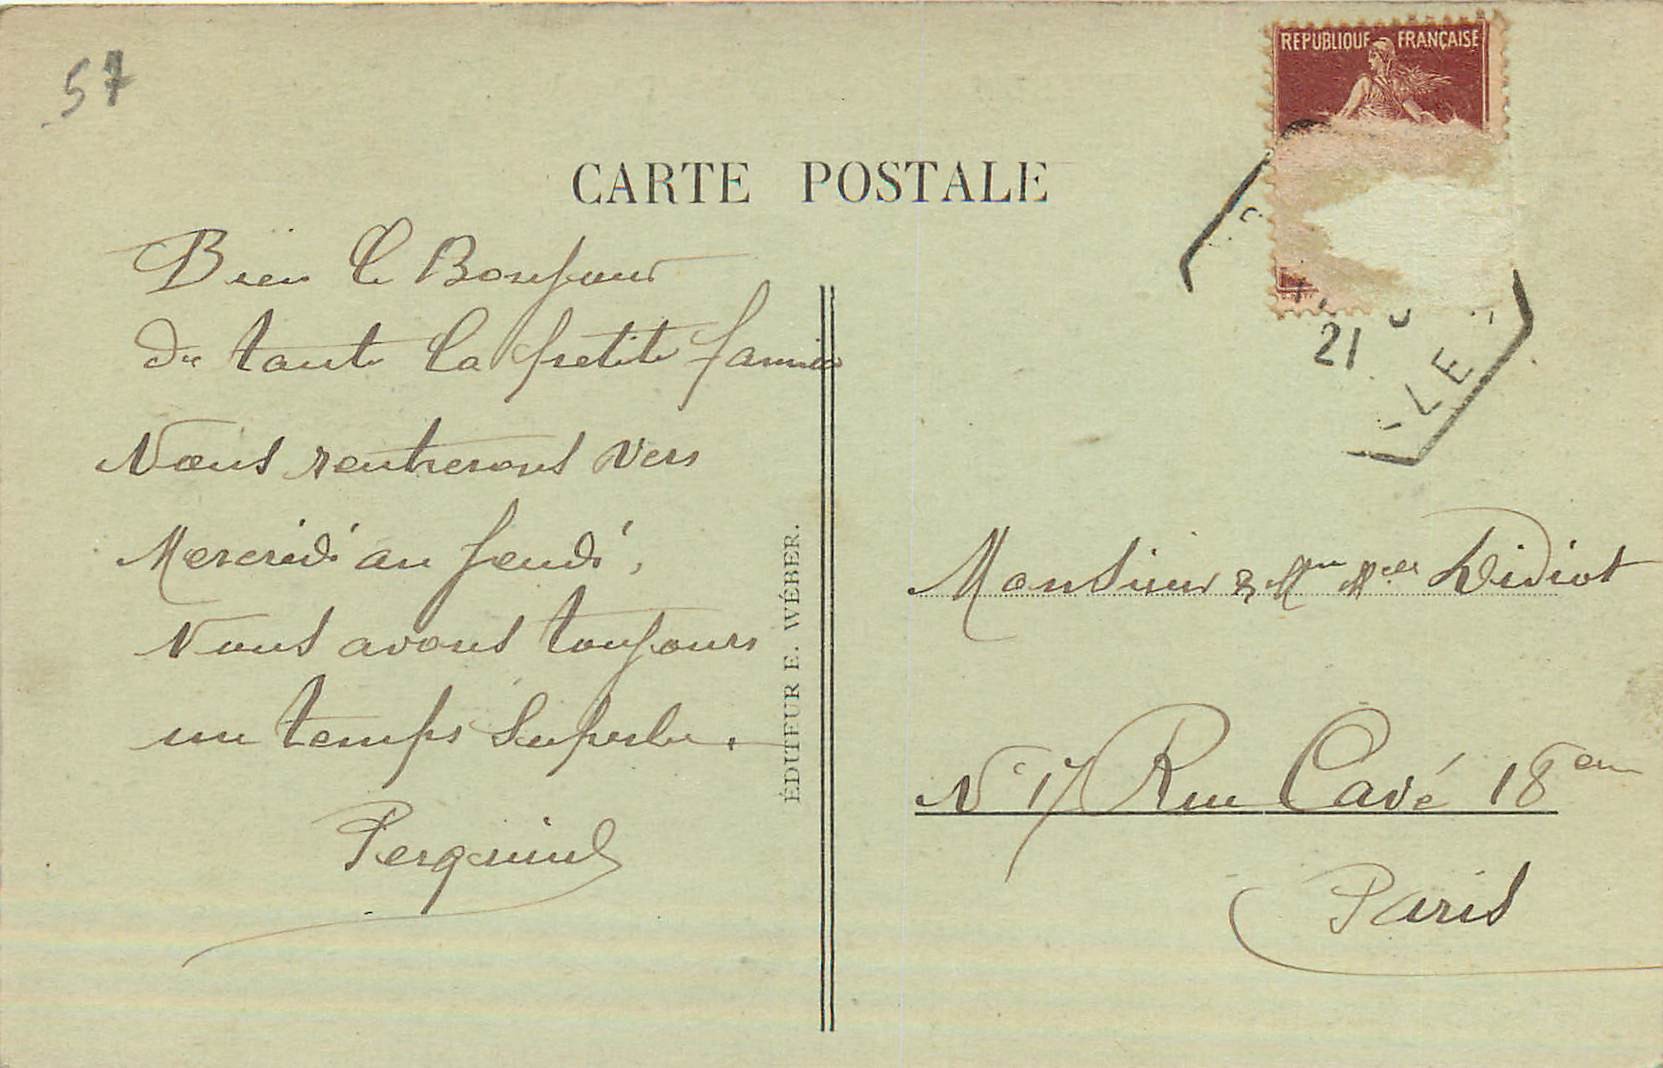 57
RÉPUBLIQUE FRANÇAISE
CARTE POSTALE
21
LE
Bien le Bonjour
de toute la petite famille
Nous rentrerons vers
Mercredi au Jeudi,
Nous avons toujours
un temps Superbe.
ÉDITEUR E. WÉBER.
Monsieur & Mme Melle Didiot
N° 17 Rue Cavé 18em
Paris